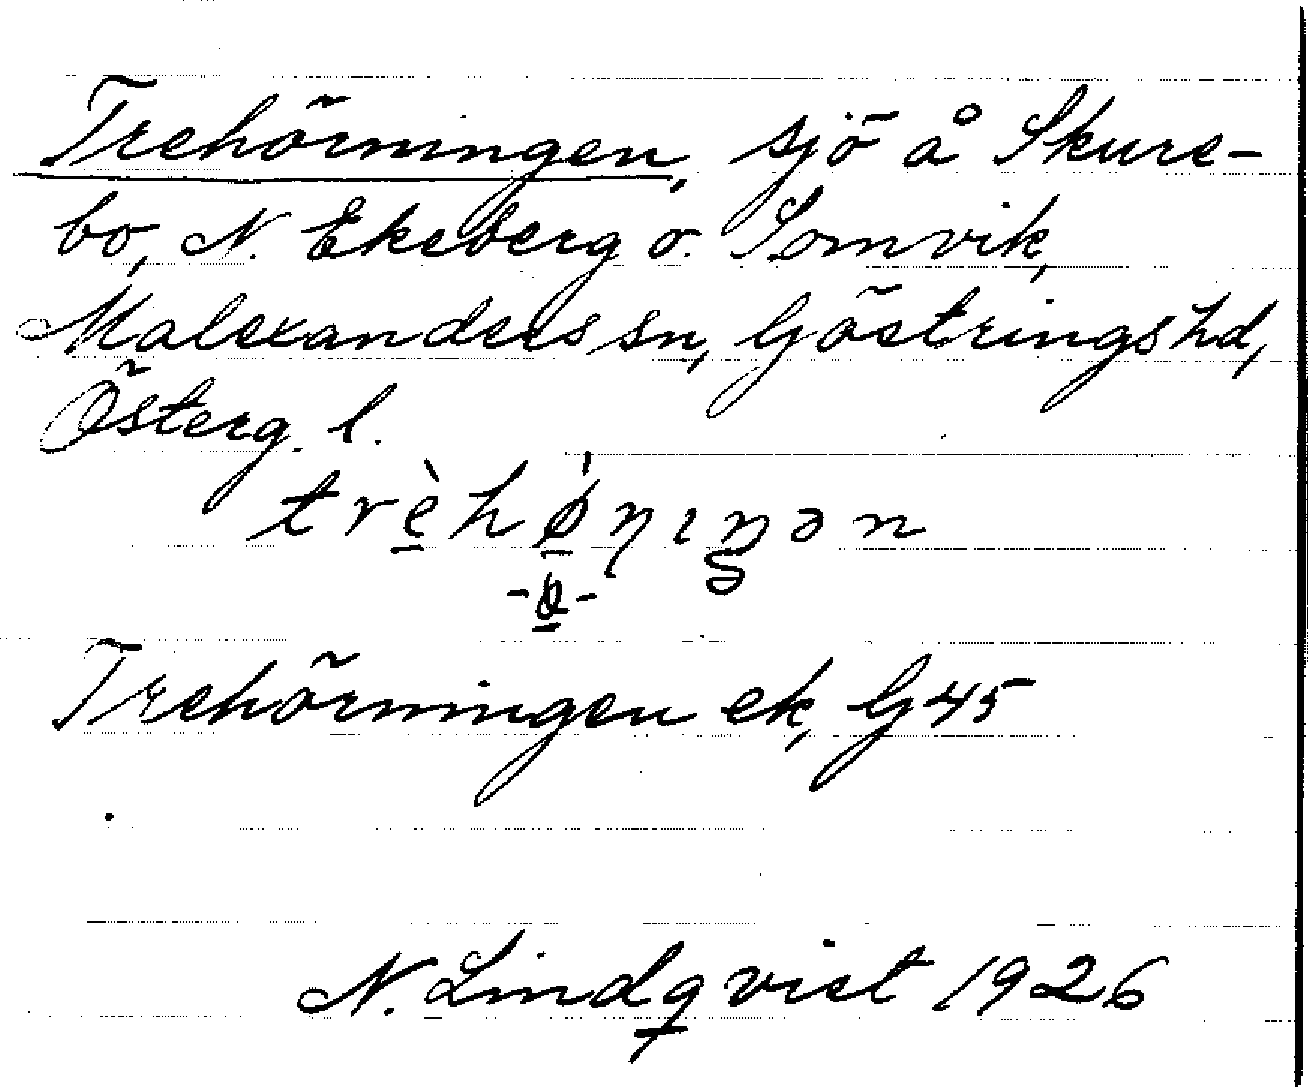 Trehörningen, sjö å Skure-
bo, N. Ekeberg o. Somvik,
Malexanders sn, Göstrings hd,
Österg. l.
trèhǿ̠ɳıŋən
-ø̠-
Trehörningen ek, G45
N. Lindqvist 1926